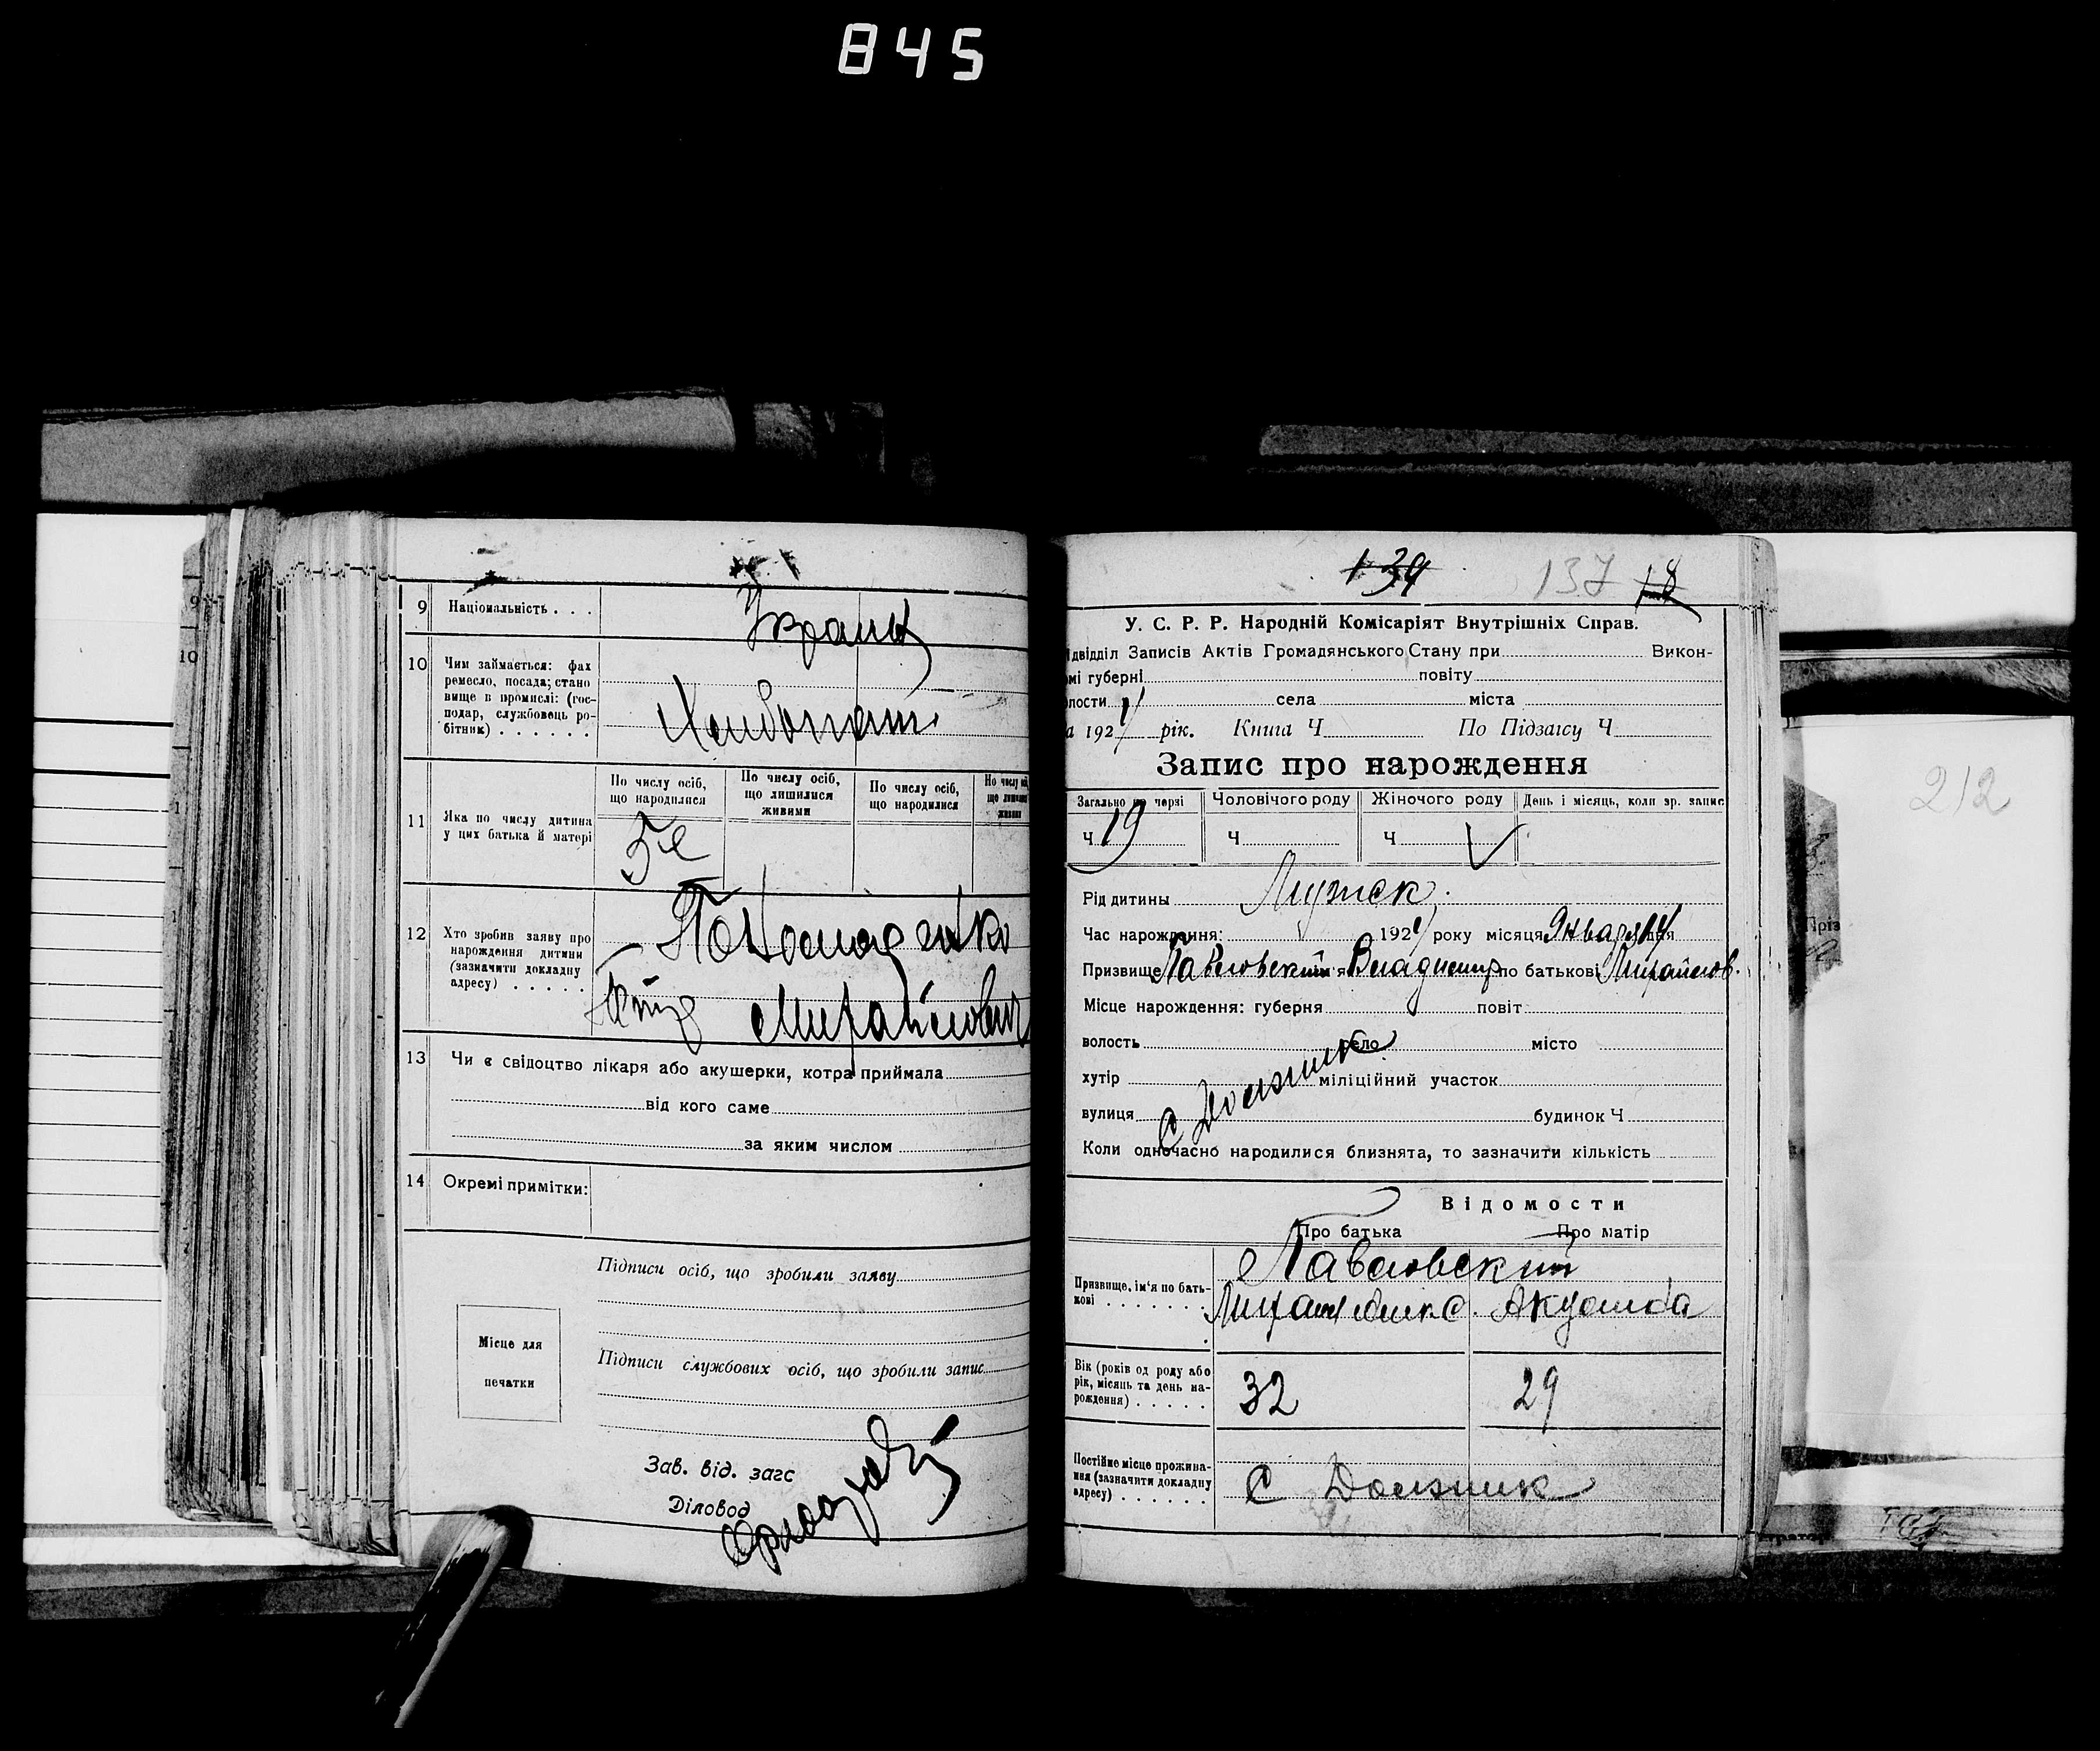 845
9 Національність . . .
Украин
10 Чим займається: фах
ремесло, посада; стано
вище в промислі: (гос-
подар, службовець ро-
бітник) . . . . . .
Хлибопаш.
11 Яка по числу дитина
у цих батька й матері
По числу осіб,
що народилися
По числу осіб,
що лишилися
живими
По числу осіб,
що народилися
5е
12 Хто зробив заяву про
нарождення дитини
(зазначити докладну
адресу) . . . . .
Михайлович
13 Чи є свідоцтво лікаря або акушерки, котра приймала
від кого саме
за яким числом
14 Окремі примітки:
Підписи осіб, що зробили заяву
Місце для
печатки
Підписи службових осіб, що зробили запис
Зав. від. загс
Діловод
139 137 18
У. С. Р. Р. Народній Комісаріят Внутрішніх Справ.
двідділ Записів Актів Громадянського Стану при Викон-
мі губерні повіту
лости села міста
а 192 рік. Книга Ч По Підзагсу Ч
Запис про нарождення
Загально по черзі Чоловічого роду Жіночого роду День і місяць, коли зр. запис
Ч 19 Ч Ч
Рід дитини Мужск.
Час нарождення: 192 року місяця Января дня
Призвище Павловский я Владимир по батькові Михайлов.
Місце нарождення: губерня повіт
волость село місто
хутір міліційний участок
вулиця С Должик будинок Ч
Коли одночасно народилися близнята, то зазначити кількість
Відомости
Про батька Про матір
Призвище, ім'я по бать-
кові . . . . . . .
Павловский
Акулина
Вік (років од роду або
рік, місяць та день на-
рождення) . . . . .
32 29
Постійне місце прожива-
ння (зазначити докладну
адресу) . . . . . .
С Должик
212